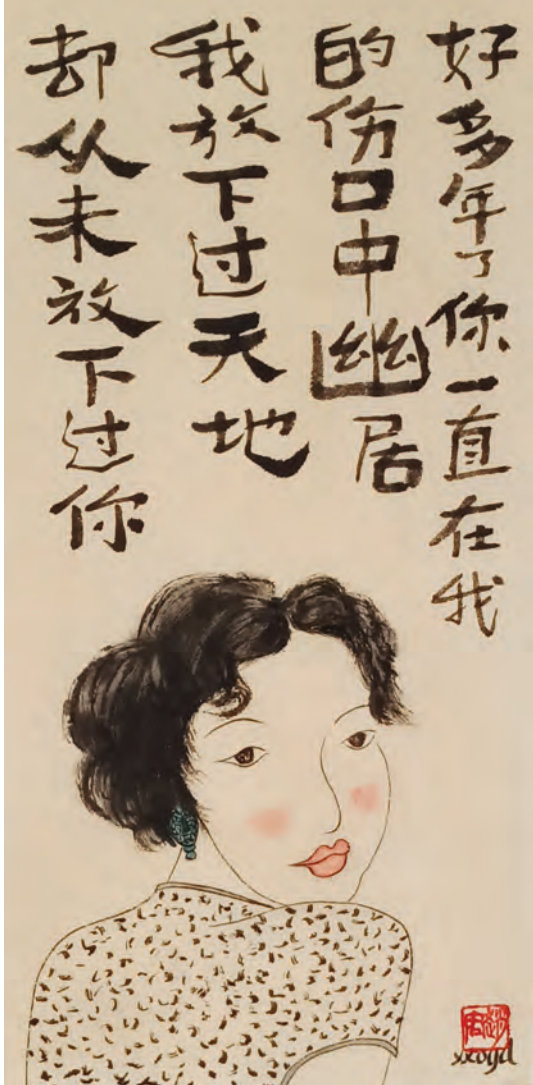 好多年了你一直在我
的伤口中幽居
我放下过天地
却从未放下过你